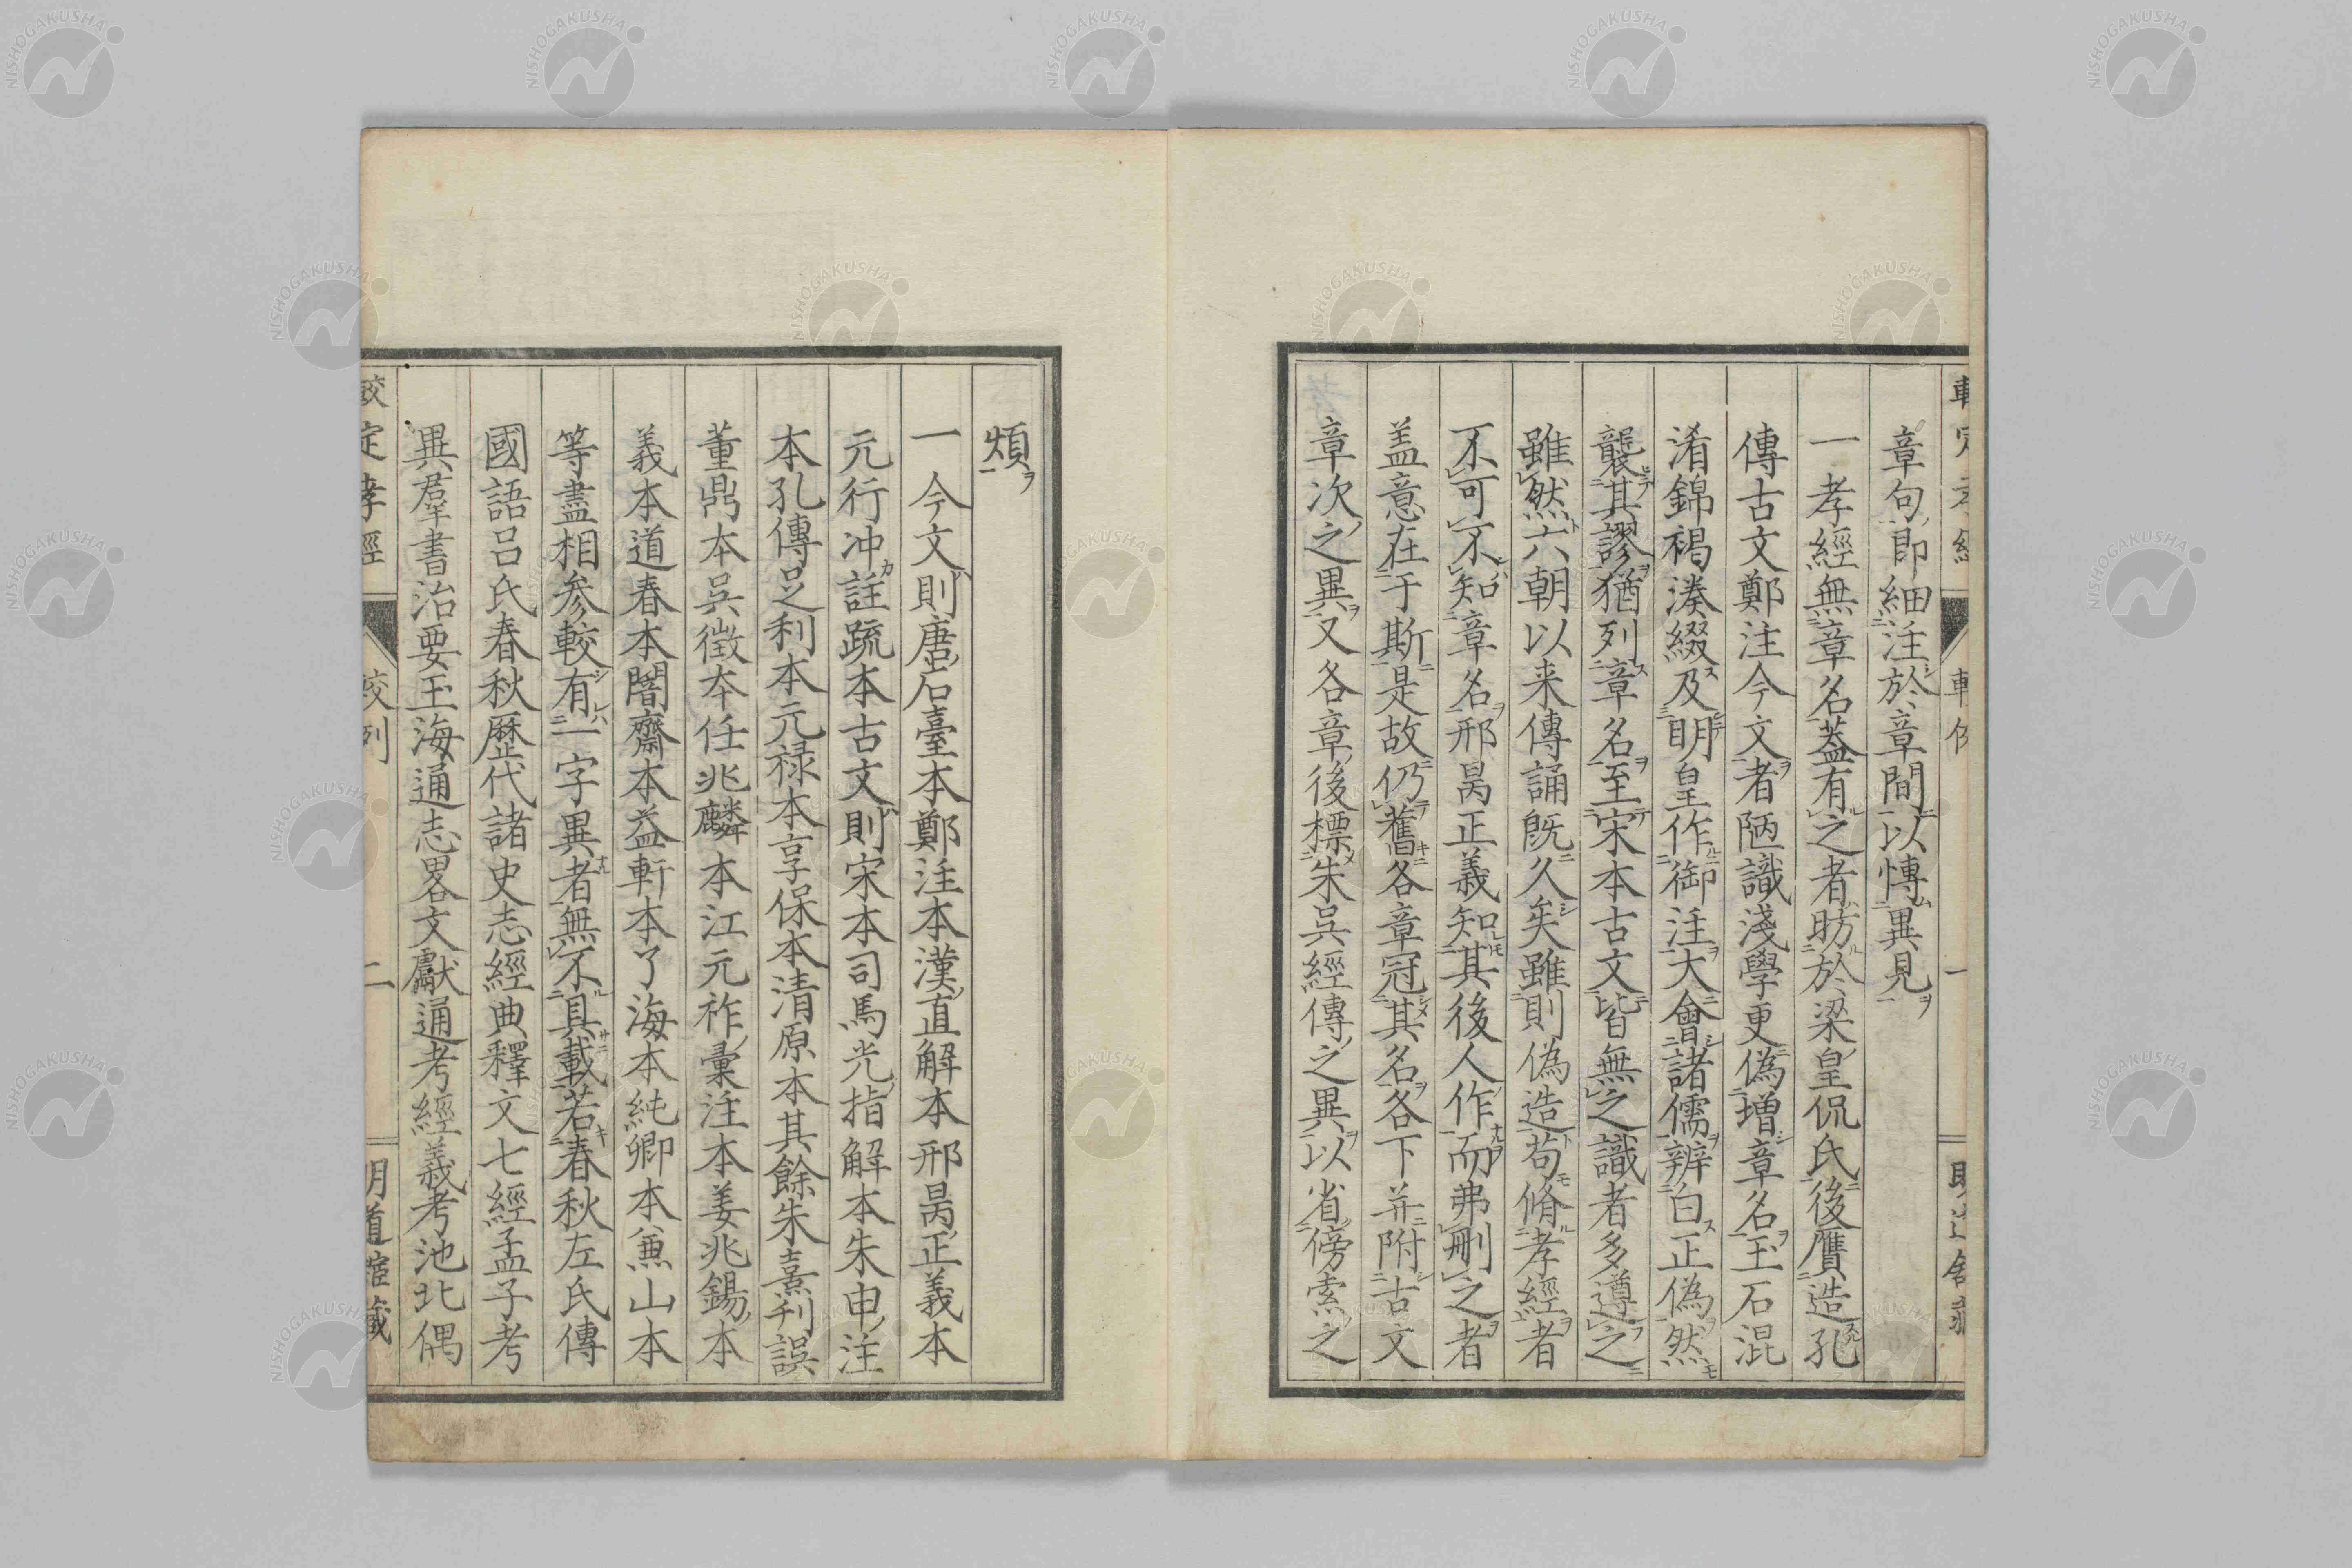 章句即細注於章間以慱異見
一孝經無章名蓋有之者昉於梁皇侃氏後贋造孔
傳古文鄭注今文者陋識淺學更偽增章名玉石混
淆錦褐湊綴及明皇作御注大會諸儒辨白正偽然
襲其謬猶列章名至宋本古文皆無之識者多遵之
雖然六朝以来傳誦既久矣雖則偽造苟脩孝經者
不可不知章名邢昺正義知其後人作而弗刪之者
盖意在于斯是故仍舊各章冠其名各下并附古文
章次之異又各章後標朱吳經傳之異以省傍索之
煩
一今文則唐石臺本鄭注本漢直解本邢昺正義本
元行冲註疏本古文則宋本司馬光指解本朱申注
本孔傳足利本元禄本享保本清原本其餘朱熹刊誤
董鼎本吳徵本任兆麟本江元祚彙注本姜兆錫本
義本道春本闇齋本益軒本了海本純卿本兼山本
等盡相参較有一字異者無不具載若春秋左氏傳
國語呂氏春秋歷代諸史志經典釋文七經孟子考
異羣書治要玉海通志畧文獻通考經義考池北偶
較定孝經
較例
二
明道舘藏
NISHOGAKUSHA